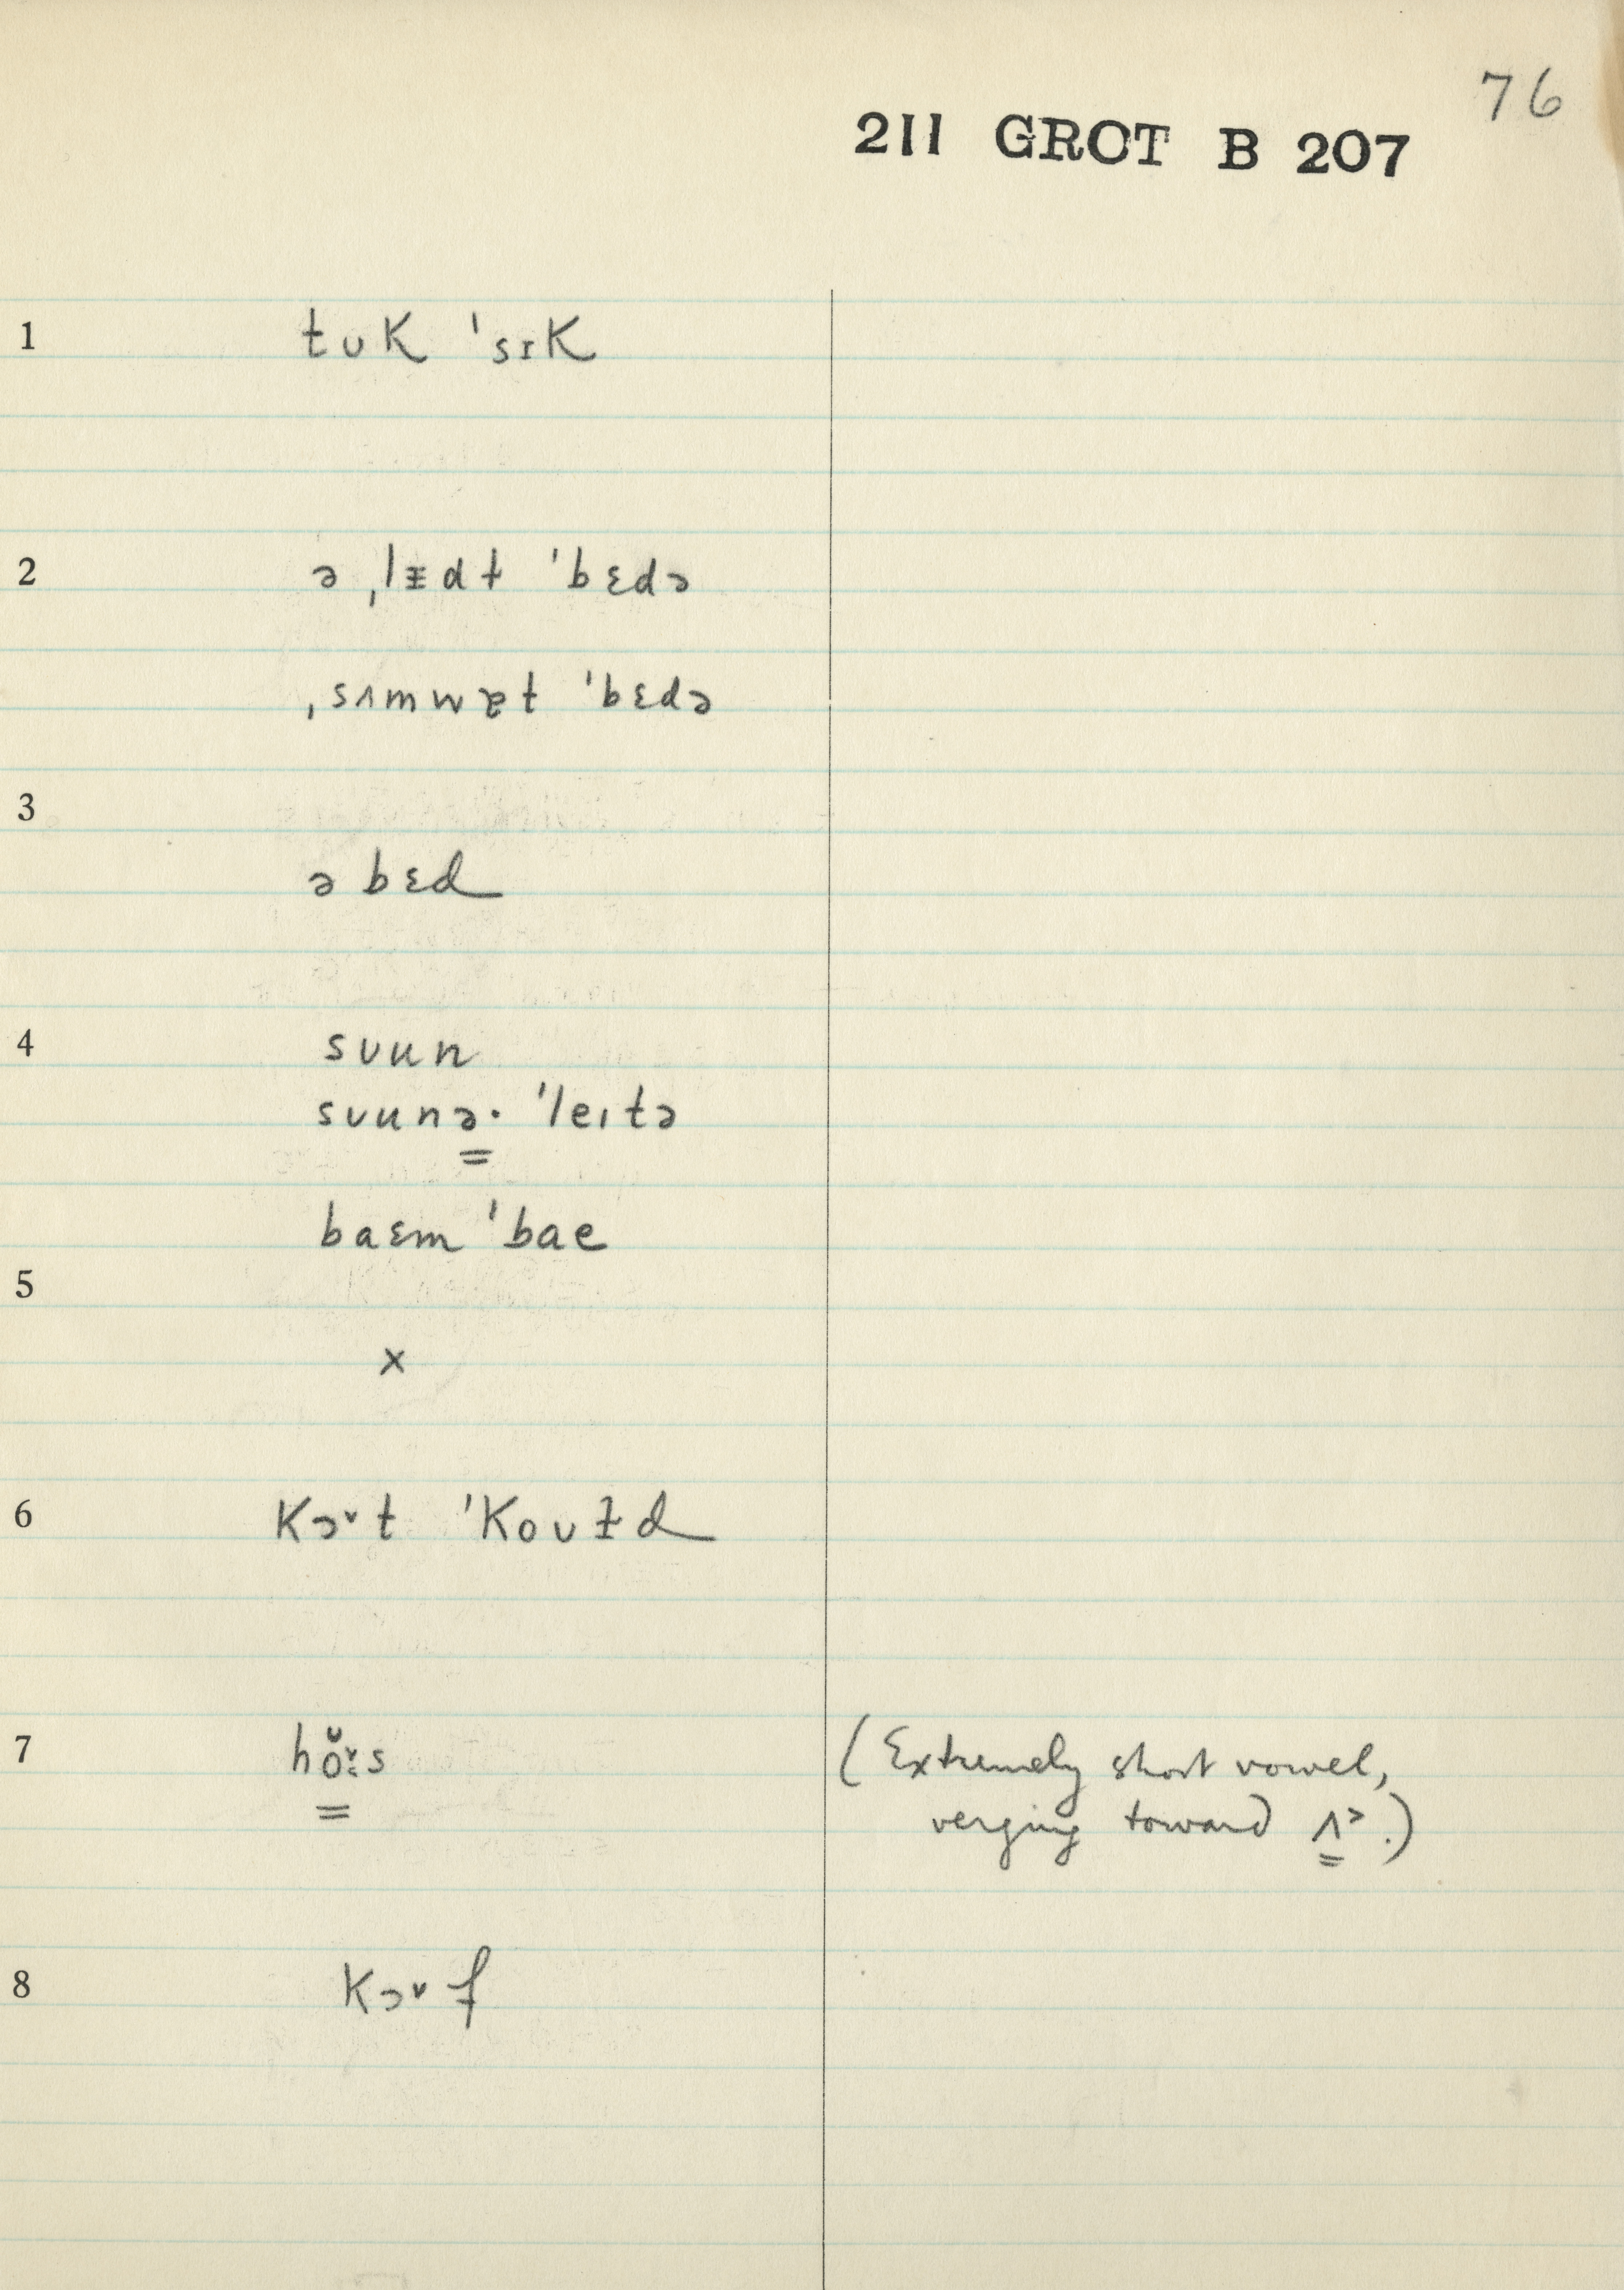 76
211 GROT B 207
1 tʊK 'sɪK
2 ə ˌlɪdt 'bɛdə
ˌsʌmwɐt 'bɛdə
3
ə bɛd
4 sʊun
sʊunə· 'leɪtə
baɛm 'bae
5
x
6 Kɔ˅t 'Koʊɫd
7 hŏ˅s
(Extremely short vowel,
verging toward ʌ˃.)
8 Kɔ˅f